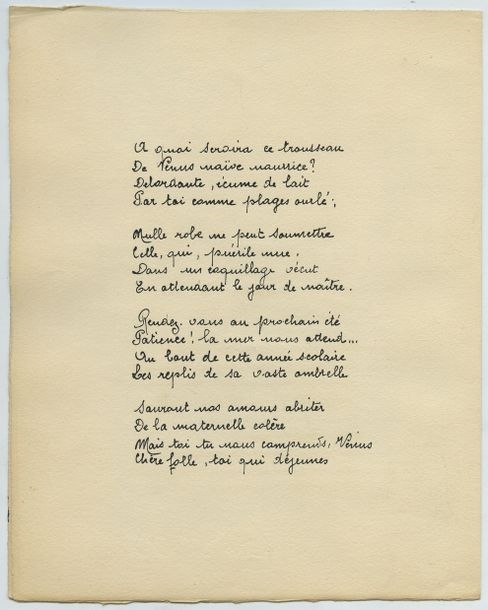 A quoi servira ce trousseau
De Vénus naïve nourrice?
Débordante, écume de lait
Par toi comme plages ourlé;

Nulle robe ne peut soumettre
Celle, qui, puérile nue,
Dans un coquillage vécut
En attendant le jour de naître.

Rendez-vous au prochain été
Patience! la mer nous attend...
Au bout de cette année scolaire
Les replis de sa vaste ombrelle

Sauront nos amours abriter
De la maternelle colère
Mais toi tu nous comprends, Vénus
Chère folle, toi qui déjeunes